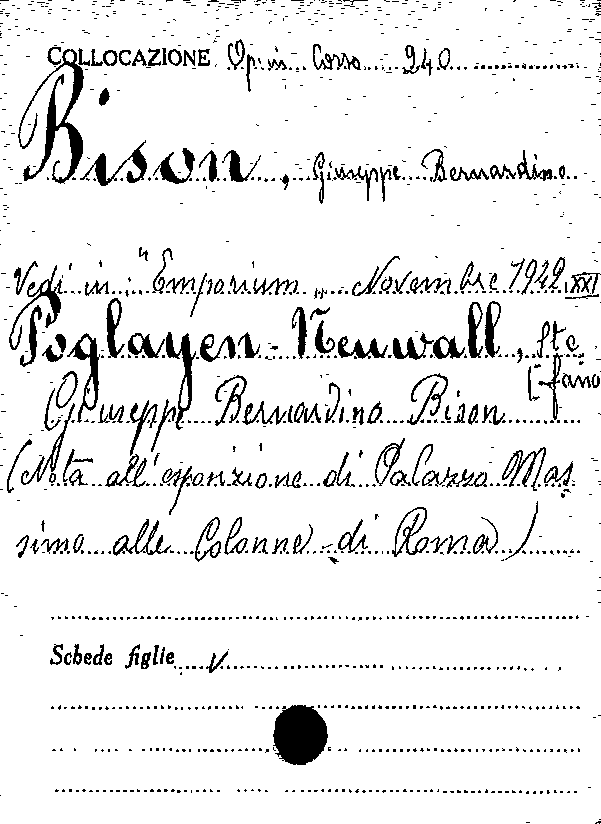 COLLOCAZIONE Op. in Corso 240
Bison, Giuseppe Bernardino
Vedi in: "Emporium„ Novembre 1942. XXI
Poglayen-Neuwall, Ste
[fano
Giuseppe Bernardino Bison
(Nota all'esposizione di Palazzo Mas
simo alle Colonne di Roma)
Schede figlie V